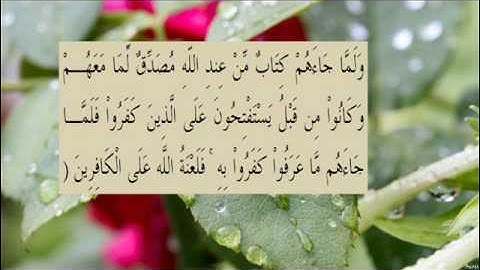 وَلَمَّا جَاءَهُمْ كِتَابٌ مِّنْ عِندِ اللّهِ مُصَدِّقٌ لِّمَا مَعَهُـــمْ
وَكَانُواْ مِن قَبْلُ يَسْتَفْتِحُونَ عَلَى الَّذِينَ كَفَرُواْ فَلَمَّـــا
جَاءَهُم مَّا عَرَفُواْ كَفَرُواْ بِهِ ۚ فَلَعْنَةُ اللَّه عَلَى الْكَافِرِينَ (